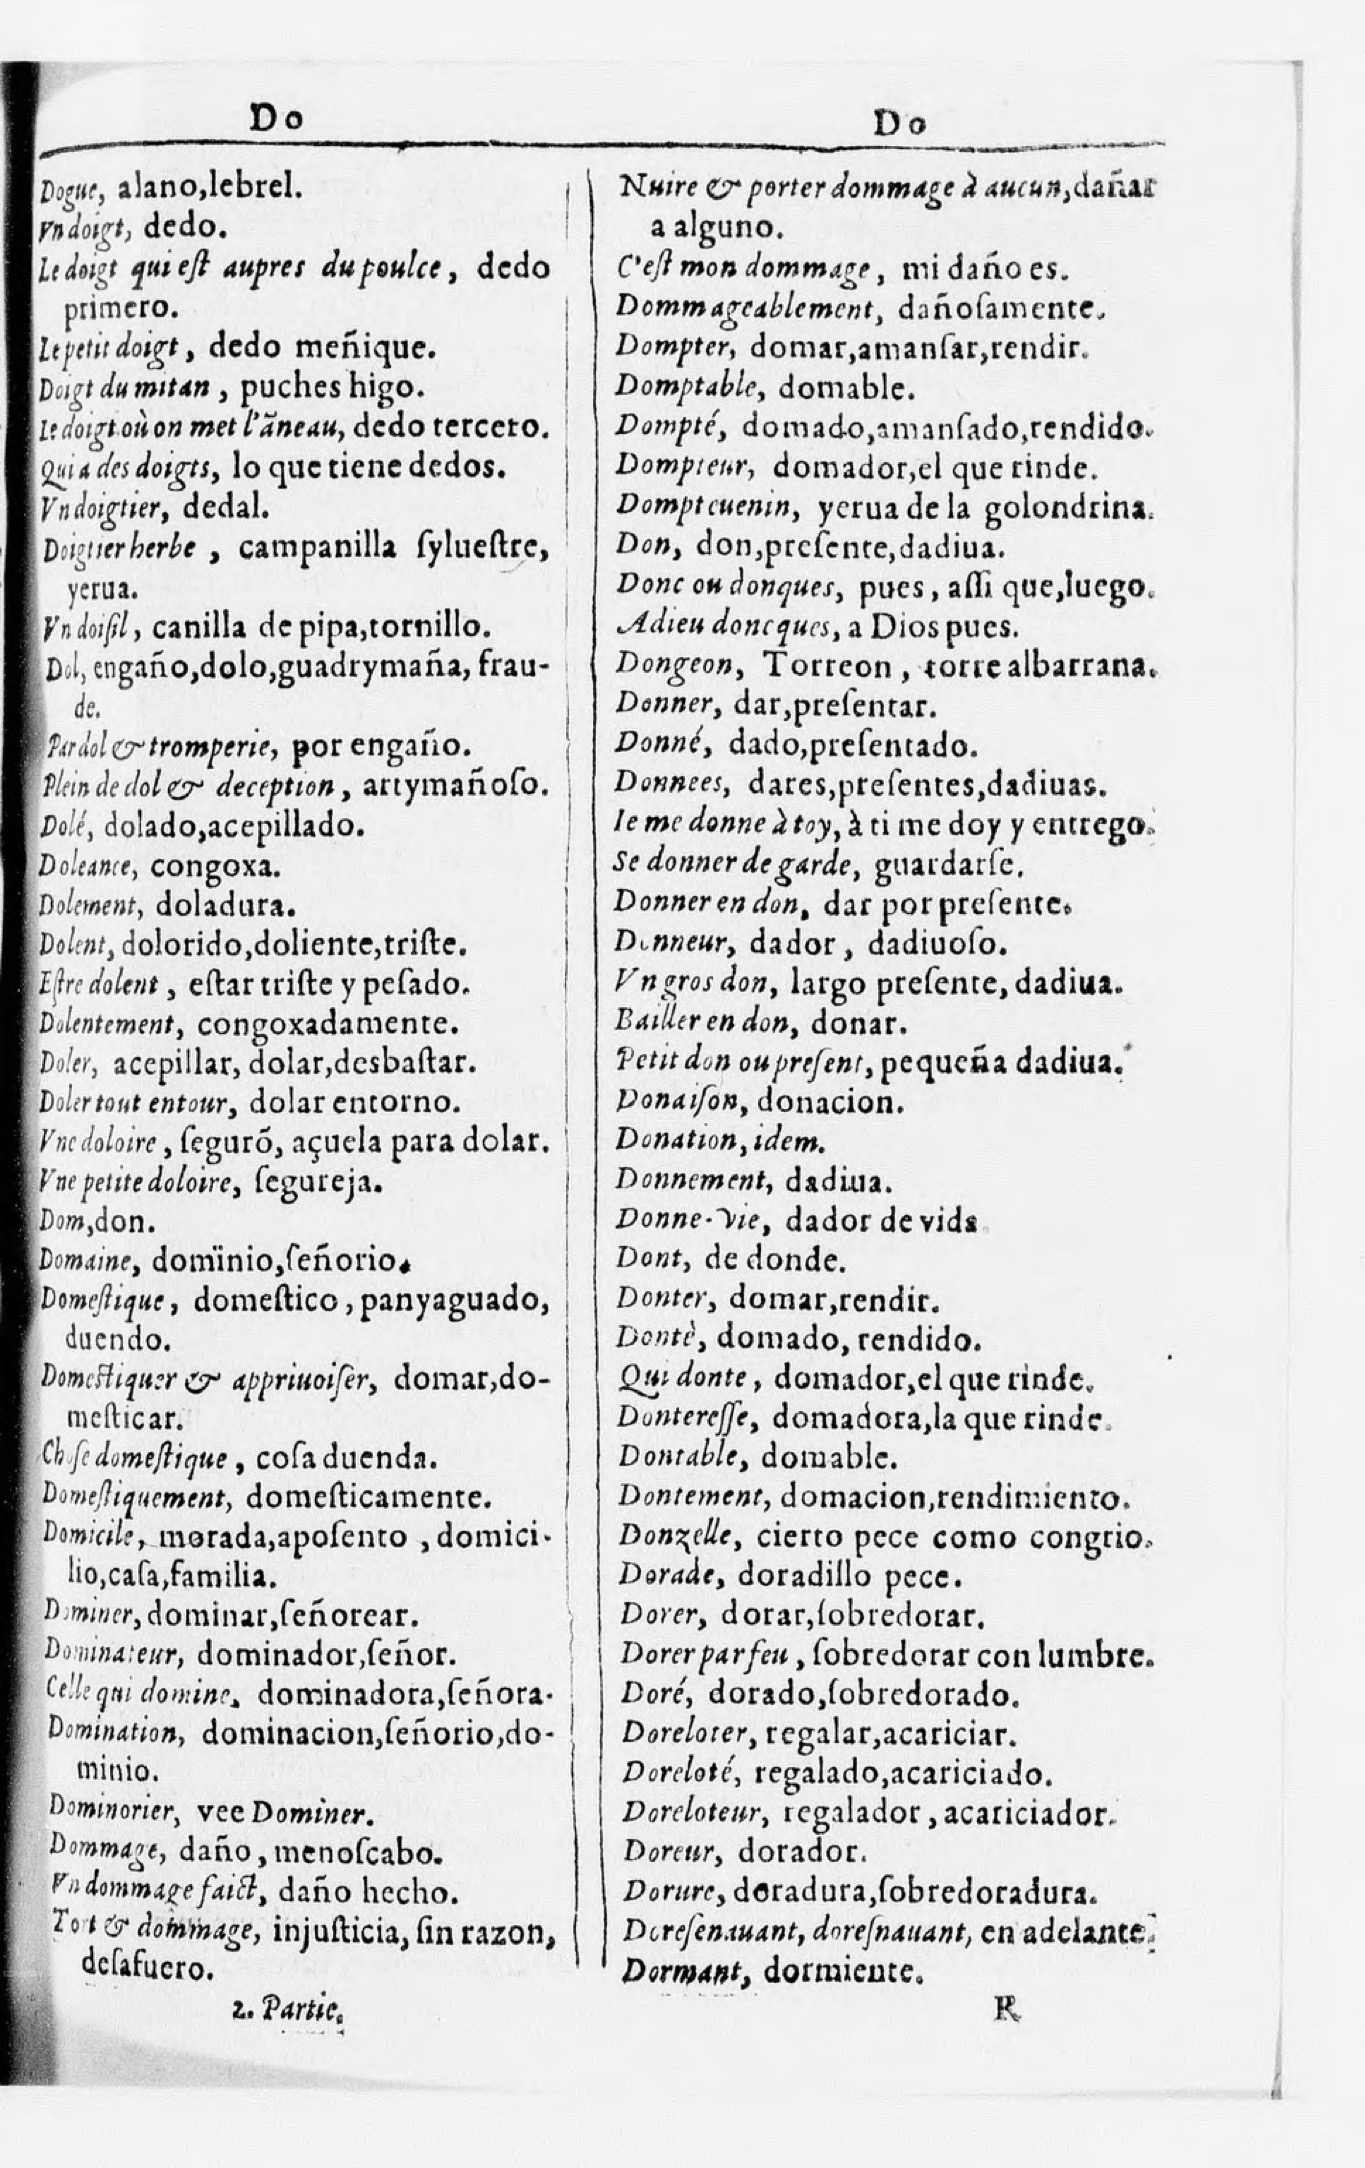 Do
Dogue, alano,lebrel.
Vn doigt, dedo.
Le doigt qui eſt aupres du poulce, dedo
primero.
Le petit doigt, dedo meñique.
Doigt du mitan, puches higo.
Le doigt où on met l'ãneau, dedo tercero.
Qui a des doigts, lo que tiene dedos.
Vn doigtier, dedal.
Doigtier herbe, campanilla ſylueſtre,
yerua.
Vn doiſil, canilla de pipa,tornillo.
Dol, engaño,dolo,guadrymaña, frau-
de.
Par dol & tromperie, por engaño.
Plein de dol & deception, artymañoſo.
Dolé, dolado,acepillado.
Doleance, congoxa.
Dolement, doladura.
Dolent, dolorido,doliente,triſte.
Eſtre dolent, eſtar triſte y peſado.
Dolentement, congoxadamente.
Doler, acepillar, dolar,desbaſtar.
Doler tout entour, dolar entorno.
Vne doloire, ſegurõ, açuela para dolar.
Vne petite doloire, ſegureja.
Dom,don.
Domaine, domïnio,ſeñorio.
Domeſtique, domeſtico, panyaguado,
duendo.
Domeſtiquer & appriuoiſer, domar,do-
meſticar.
Choſe domeſtique, coſa duenda.
Domeſtiquement, domeſticamente.
Domicile, morada,apoſento, domici-
lio,caſa,familia.
Dominer, dominar,ſeñorear.
Dominateur, dominador,ſeñor.
Celle qui domine, dominadora,ſeñora.
Domination, dominacion,ſeñorio,do-
minio.
Dominorier, vee Dominer.
Dommage, daño, menoſcabo.
Vn dommage faict, daño hecho.
Tort & dommage, injuſticia, ſin razon,
deſafuero.
2. Partie.
Do
Nuire & porter dommage à aucun,dañar
a alguno.
C'eſt mon dommage, mi daño es.
Dommageablement, dañoſamente.
Dompter, domar,amanſar,rendir.
Domptable, domable.
Dompté, domado,amanſado,rendido.
Dompteur, domador,el que rinde.
Dompteuenin, yerua de la golondrina.
Don, don,preſente,dadiua.
Donc ou donques, pues, aſſi que,luego.
Adieu doncques, a Dios pues.
Dongeon, Torreon, torre albarrana.
Donner, dar,preſentar.
Donné, dado,preſentado.
Donnees, dares,preſentes,dadiuas.
Ie me donne à toy, à ti me doy y entrego.
Se donner de garde, guardarſe.
Donner en don, dar por preſente.
Donneur, dador, dadiuoſo.
Vn gros don, largo preſente, dadiua.
Bailler en don, donar.
Petit don ou preſent, pequeña dadiua.
Donaiſon, donacion.
Donation, idem.
Donnement, dadiua.
Donne-vie, dador de vida
Dont, de donde.
Donter, domar,rendir.
Dontè, domado, rendido.
Qui donte, domador,el que rinde.
Dontereſſe, domadora,la que rinde.
Dontable, domable.
Dontement, domacion,rendimiento.
Donzelle, cierto pece como congrio.
Dorade, doradillo pece.
Dorer, dorar,ſobredorar.
Dorer par feu, ſobredorar con lumbre.
Doré, dorado,ſobredorado.
Doreloter, regalar,acariciar.
Doreloté, regalado,acariciado.
Doreloteur, regalador, acariciador.
Doreur, dorador.
Dorure, doradura,ſobredoradura.
Doreſenauant, doreſnauant, en adelante.
Dormant, dormiente.
R